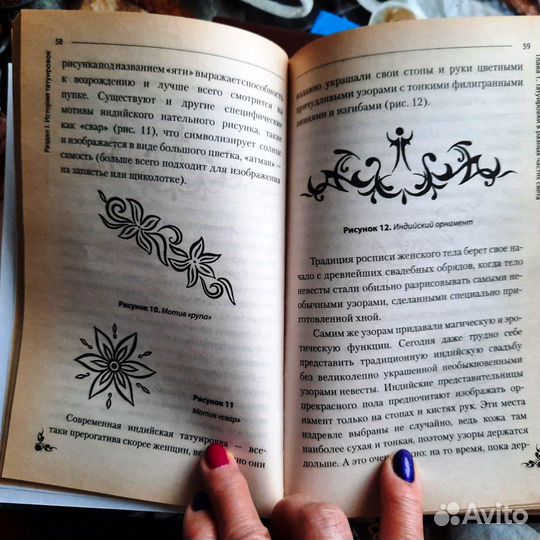 58
Раздел I. История татуировок
рисунка под названием «яти» выражает способность
к возрождению и лучше всего смотрится на
пупке. Существуют и другие специфические
мотивы индийского нательного рисунка, такие
как «свар» (рис. 11), что символизирует солнце
и изображается в виде большого цветка, «атман» –
самость (больше всего подходит для изображения
на запястье или щиколотке).
Рисунок 10. Мотив «рупа»
Рисунок 11
Мотив «свар»
Современная индийская татуировка – все-
таки прерогатива скорее женщин, они
59
Глава 1. Татуировки в разных частях света
издавно украшали свои стопы и руки цветными
причудливыми узорами с тонкими филигранными
линиями и изгибами (рис. 12).
Рисунок 12. Индийский орнамент
Традиция росписи женского тела берет свое на-
чало с древнейших свадебных обрядов, когда тело
невесты стали обильно разрисовывать самыми не-
обычными узорами, сделанными специально при-
готовленной хной.
Самим же узорам придавали магическую и эро-
тическую функции. Сегодня даже трудно себе
представить традиционную индийскую свадьбу
без великолепно украшенной необыкновенными
узорами невесты. Индийские представительницы
прекрасного пола предпочитают изображать ор-
намент только на стопах и кистях рук. Эти места
издревле выбраны не случайно, ведь кожа там
наиболее сухая и тонкая, поэтому узоры держатся
дольше. А это очень но: на то время, пока дер-
Avito